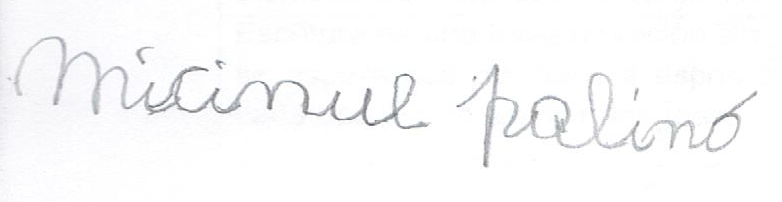 Micimul palinó